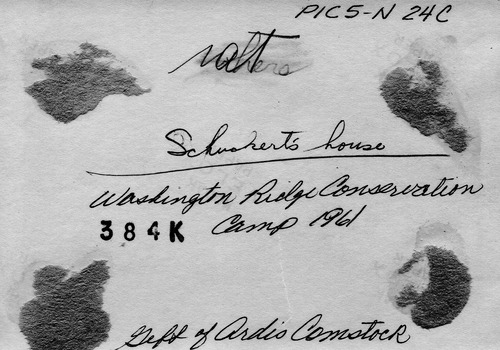 PIC5-N 24C
Schuckert's house
Washington Ridge Conservation
384K Camp 1961
Gift of Ardis Comstock